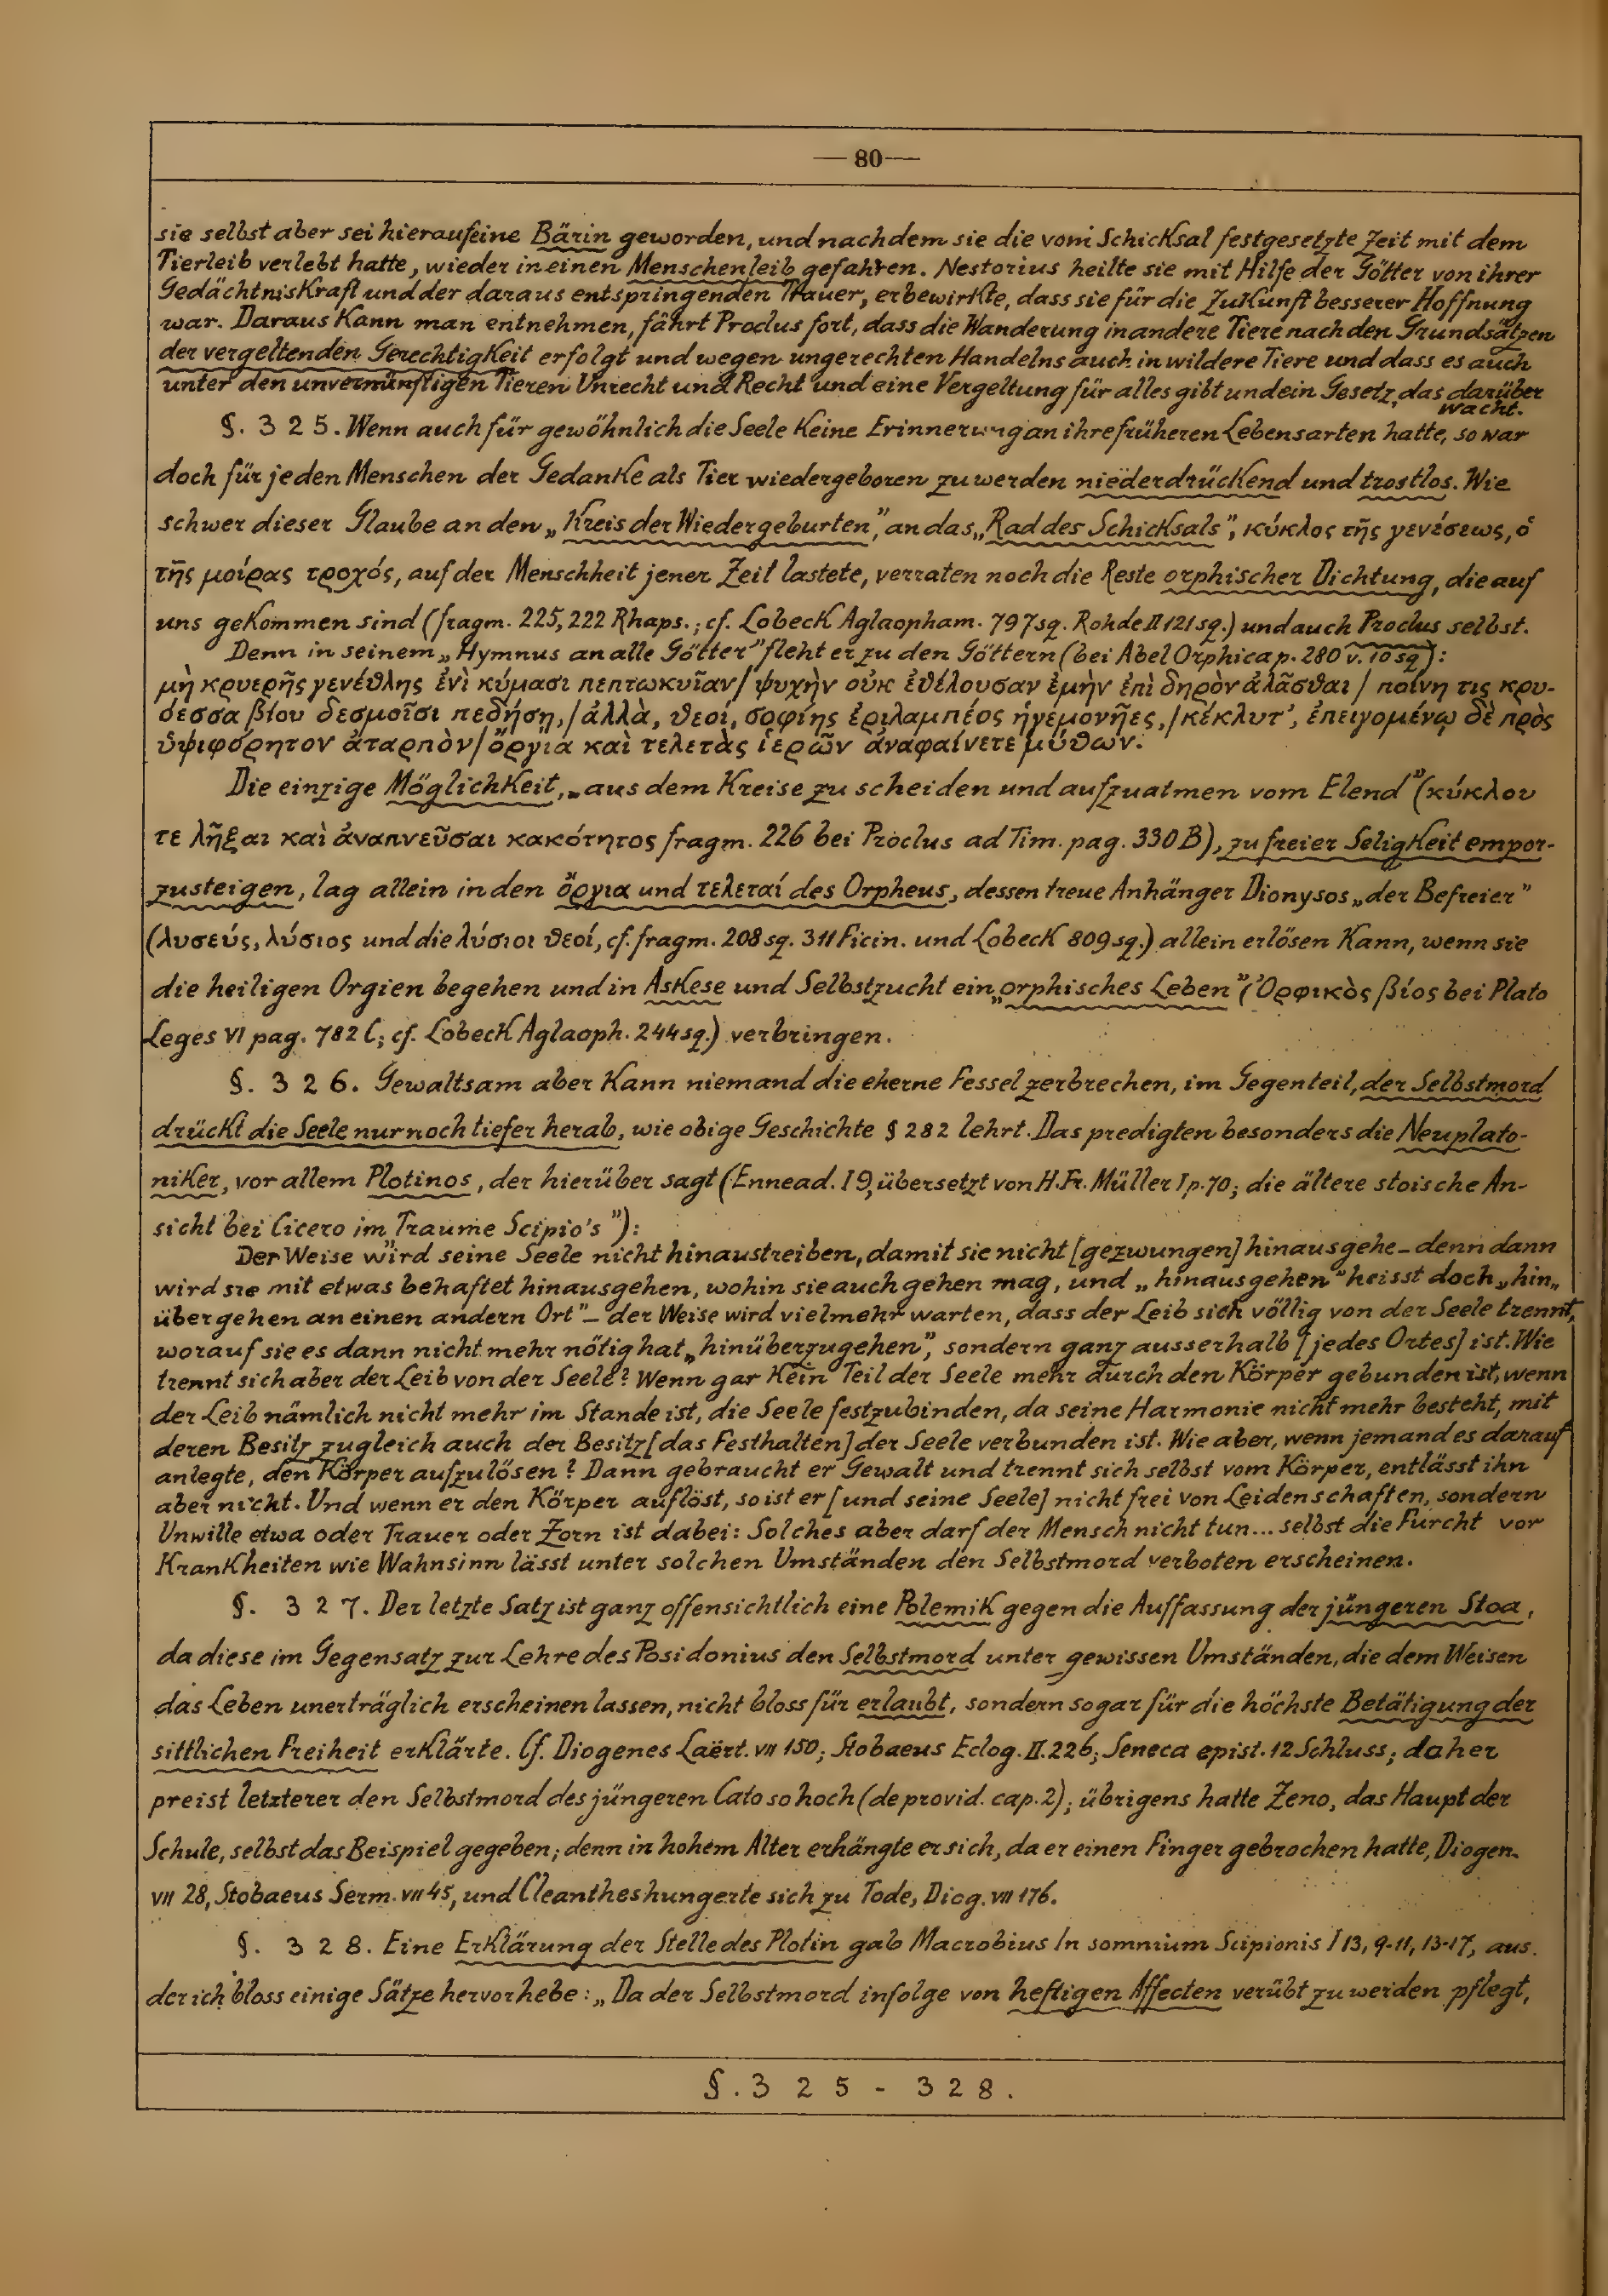 — 80 —
sie selbst aber sei hierauf eine Bärin geworden, und nachdem sie die vom Schicksal festgesetzte Zeit mit dem
Tierleib verlebt hatte, wieder in einen Menschenleib gefahren. Nestorius heilte sie mit Hilfe der Götter von ihrer
Gedächtniskraft und der daraus entspringenden Trauer, er bewirkte, dass sie für die Zukunft besserer Hoffnung
war. Daraus kann man entnehmen, fährt Proclus fort, dass die Wanderung in andere Tiere nach den Grundsätzen
der vergeltenden Gerechtigkeit erfolgt und wegen ungerechten Handelns auch in wildere Tiere und dass es auch
unter den unvernünftigen Tieren Unrecht und Recht und eine Vergeltung für alles gibt und ein Gesetz, das darüber
wacht.
§. 325. Wenn auch für gewöhnlich die Seele keine Erinnerung an ihre früheren Lebensarten hatte, so war
doch für jeden Menschen der Gedanke als Tier wiedergeboren zu werden niederdrückend und trostlos. Wie
schwer dieser Glaube an den „Kreis der Wiedergeburten", an das „Rad des Schicksals", κύκλος τῆς γενέσεως, ὁ
τῆς μοίρας τροχός, auf der Menschheit jener Zeit lastete, verraten noch die Reste orphischer Dichtung, die auf
uns gekommen sind (fragm. 225, 222 Rhaps.; cf. Lobeck Aglaopham. 797 sq. Rohde II 121 sq.) und auch Proclus selbst.
Denn in seinem „Hymnus an alle Götter" fleht er zu den Göttern (bei Abel Orphica p. 280 v. 10 sq):
μὴ κρυερῆς γενέθλης ἐνὶ κύμασι πεπτωκυῖαν / ψυχὴν οὐκ ἐθέλουσαν ἐμὴν ἐπὶ δηρὸν ἀλᾶσθαι / ποίνη τις κρυ-
όεσσα βίου δεσμοῖσι πεδήσῃ, / ἀλλὰ, θεοί, σοφίης ἐριλαμπέος ἡγεμονῆες, / κέκλυτ', ἐπειγομένῳ δὲ πρὸς
ὑψιφόρητον ἀταρπὸν / ὄργια καὶ τελετὰς ἱερῶν ἀναφαίνετε μύθων.
Die einzige Möglichkeit, „aus dem Kreise zu scheiden und aufzuatmen vom Elend" (κύκλου
τε λῆξαι καὶ ἀναπνεῦσαι κακότητος fragm. 226 bei Proclus ad Tim. pag. 330 B), zu freier Seligkeit empor-
zusteigen, lag allein in den ὄργια und τελεταί des Orpheus, dessen treue Anhänger Dionysos „der Befreier"
(λυσεύς, λύσιος und die λύσιοι θεοί, cf. fragm. 208 sq. 311 Ficin. und Lobeck 809 sq.) allein erlösen kann, wenn sie
die heiligen Orgien begehen und in Askese und Selbstzucht ein „orphisches Leben" (Ὀρφικὸς βίος bei Plato
Leges VI pag. 782 C; cf. Lobeck Aglaoph. 244 sq.) verbringen.
§. 326. Gewaltsam aber kann niemand die eherne Fessel zerbrechen, im Gegenteil, der Selbstmord
drückt die Seele nur noch tiefer herab, wie obige Geschichte § 282 lehrt. Das predigten besonders die Neuplato-
niker, vor allem Plotinos, der hierüber sagt (Ennead. I 9, übersetzt von H. Fr. Müller I p. 70; die ältere stoische An-
sicht bei Cicero im „Traume Scipio's"):
Der Weise wird seine Seele nicht hinaustreiben, damit sie nicht [gezwungen] hinausgehe – denn dann
wird sie mit etwas behaftet hinausgehen, wohin sie auch gehen mag, und „hinausgehen" heisst doch „hin„
übergehen an einen andern Ort" – der Weise wird vielmehr warten, dass der Leib sich völlig von der Seele trennt,
worauf sie es dann nicht mehr nötig hat „hinüberzugehen", sondern ganz ausserhalb [jedes Ortes] ist. Wie
trennt sich aber der Leib von der Seele? Wenn gar kein Teil der Seele mehr durch den Körper gebunden ist, wenn
der Leib nämlich nicht mehr im Stande ist, die Seele festzubinden, da seine Harmonie nicht mehr besteht, mit
deren Besitz zugleich auch der Besitz [das Festhalten] der Seele verbunden ist. Wie aber, wenn jemand es darauf
anlegte, den Körper aufzulösen? Dann gebraucht er Gewalt und trennt sich selbst vom Körper, entlässt ihn
aber nicht. Und wenn er den Körper auflöst, so ist er [und seine Seele] nicht frei von Leidenschaften, sondern
Unwille etwa oder Trauer oder Zorn ist dabei: Solches aber darf der Mensch nicht tun... selbst die Furcht vor
Krankheiten wie Wahnsinn lässt unter solchen Umständen den Selbstmord verboten erscheinen.
§. 327. Der letzte Satz ist ganz offensichtlich eine Polemik gegen die Auffassung der jüngeren Stoa,
da diese im Gegensatz zur Lehre des Posidonius den Selbstmord unter gewissen Umständen, die dem Weisen
das Leben unerträglich erscheinen lassen, nicht bloss für erlaubt, sondern sogar für die höchste Betätigung der
sittlichen Freiheit erklärte. Cf. Diogenes Laërt. VII 150; Stobaeus Eclog. II. 226; Seneca epist. 12 Schluss; daher
preist letzterer den Selbstmord des jüngeren Cato so hoch (de provid. cap. 2); übrigens hatte Zeno, das Haupt der
Schule, selbst das Beispiel gegeben; denn in hohem Alter erhängte er sich, da er einen Finger gebrochen hatte, Diogen.
VII 28, Stobaeus Serm. VII 45, und Cleanthes hungerte sich zu Tode, Diog. VII 176.
§. 328. Eine Erklärung der Stelle des Plotin gab Macrobius In somnium Scipionis I 13, 9-11, 13-17, aus
der ich bloss einige Sätze hervorhebe: „Da der Selbstmord infolge von heftigen Affecten verübt zu werden pflegt,
§. 325 - 328.